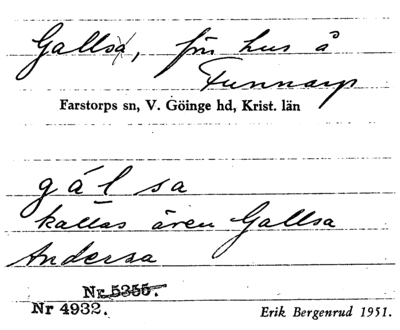 Gallsa, frn hus å
Tunnarp
Farstorps sn, V. Göinge hd, Krist. län
gál sa
kallas även Gallsa
Anderssa
Nr. 5355.
Nr 4932.
Erik Bergenrud 1951.